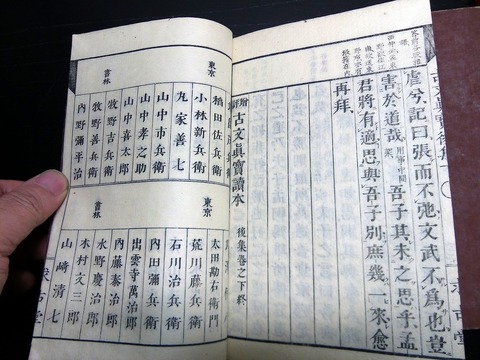 虐兮記曰張而不弛文武不爲也豈
害於道哉吾子其未之思乎孟
君將有適思與吾子別庶幾一來愈
再拜
古文眞寶讀本 後集卷之下終
東京
稻田佐兵衛
小林新兵衛
丸家善七
山中市兵衛
山中孝之助
山中喜太郎
牧野吉兵衛
牧野善兵衛
內野彌平治
書林
東京
太田勘右衛門
荒川藤兵衛
石川治兵衛
內田彌兵衛
出雲寺萬治郎
內藤泰治郎
水野慶治郎
木村文三郎
山崎清七
書林